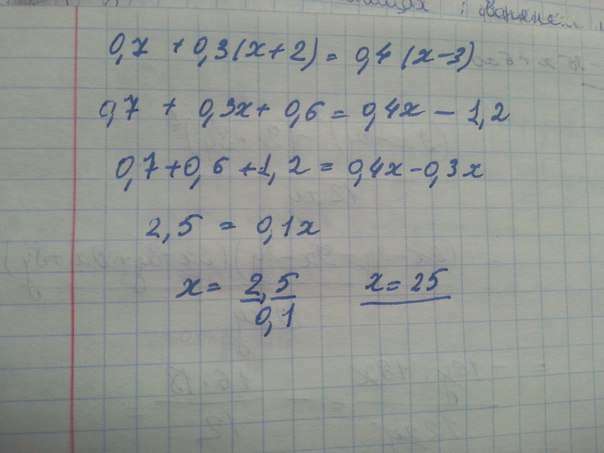 0,7 + 0,3(x+2) = 0,4(x-3)
0,7 + 0,3x + 0,6 = 0,4x - 1,2
0,7+0,6+1,2 = 0,4x-0,3x
2,5 = 0,1x
x = 2,5/0,1 x = 25